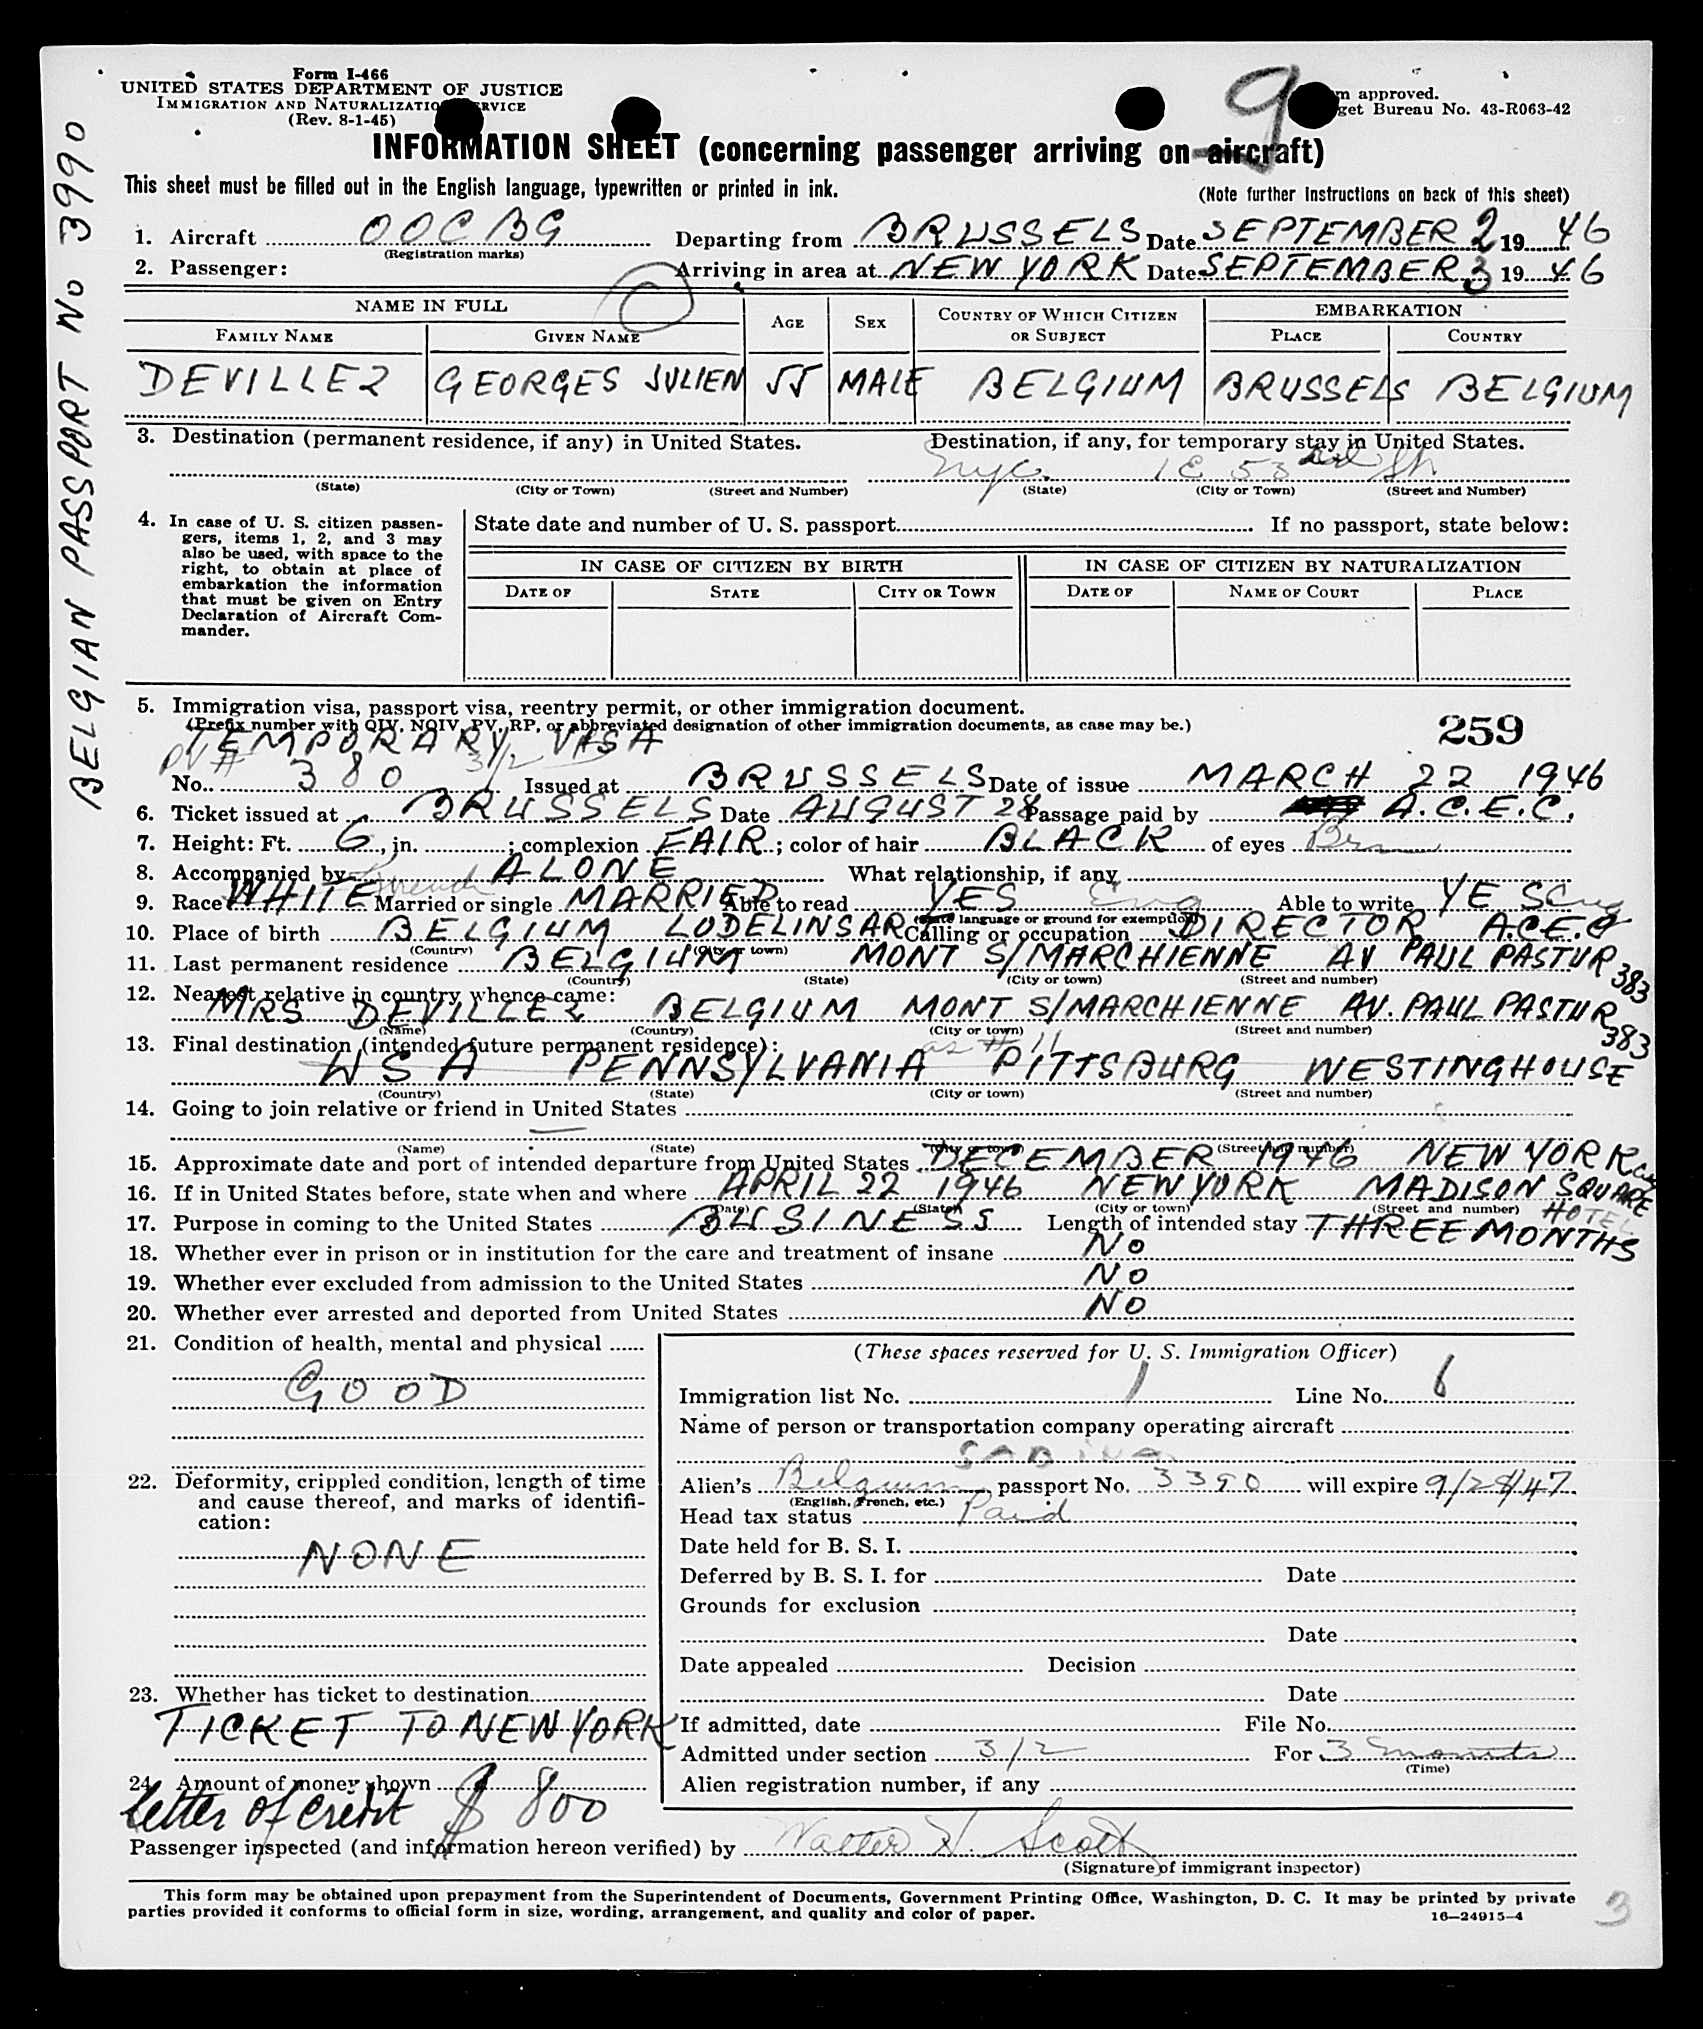 Form I-466
UNITED STATES DEPARTMENT OF JUSTICE
IMMIGRATION AND NATURALIZATION SERVICE
(Rev. 8-1-45)
9
approved.
Bureau No. 43-R063-42
INFORMATION SHEET (concerning passenger arriving on aircraft)
This sheet must be filled out in the English language, typewritten or printed in ink.
(Note further instructions on back of this sheet)
BELGIAN PASSPORT No 3990
1. Aircraft OOCBG Departing from BRUSSELS Date SEPTEMBER 2 1946
(Registration marks)
2. Passenger: Arriving in area at NEW YORK Date SEPTEMBER 3 1946
NAME IN FULL AGE SEX COUNTRY OF WHICH CITIZEN OR SUBJECT EMBARKATION
FAMILY NAME GIVEN NAME PLACE COUNTRY
DEVILLEZ GEORGES JULIEN 55 MALE BELGIUM BRUSSELS BELGIUM
3. Destination (permanent residence, if any) in United States. Destination, if any, for temporary stay in United States.
NYC. 1 E 53rd St.
(State) (City or Town) (Street and Number) (State) (City or Town) (Street and Number)
4. In case of U. S. citizen passen-
gers, items 1, 2, and 3 may
also be used, with space to the
right, to obtain at place of
embarkation the information
that must be given on Entry
Declaration of Aircraft Com-
mander.
State date and number of U. S. passport If no passport, state below:
IN CASE OF CITIZEN BY BIRTH IN CASE OF CITIZEN BY NATURALIZATION
DATE OF STATE CITY OR TOWN DATE OF NAME OF COURT PLACE
5. Immigration visa, passport visa, reentry permit, or other immigration document.
(Prefix number with QIV, NQIV, PV, RP, or abbreviated designation of other immigration documents, as case may be.)
259
TEMPORARY VISA
PV # 3/2
No. 380 Issued at BRUSSELS Date of issue MARCH 22 1946
6. Ticket issued at BRUSSELS Date AUGUST 28 Passage paid by A.C.E.C.
7. Height: Ft. 6, in. ; complexion FAIR; color of hair BLACK of eyes Brn
8. Accompanied by ALONE What relationship, if any
9. Race WHITE French Married or single MARRIED Able to read YES Eng Able to write YES Eng
(State language or ground for exemption)
10. Place of birth BELGIUM LODELINSAR Calling or occupation DIRECTOR A.C.E.C
(Country) (City or town)
11. Last permanent residence BELGIUM MONT S/MARCHIENNE AV PAUL PASTUR 383
(Country) (State) (City or town) (Street and number)
12. Nearest relative in country whence came:
MRS DEVILLEZ BELGIUM MONT S/MARCHIENNE AV. PAUL PASTUR 383
(Name) (Country) (City or town) (Street and number)
13. Final destination (intended future permanent residence): as # 11
USA PENNSYLVANIA PITTSBURG WESTINGHOUSE
(Country) (State) (City or town) (Street and number)
14. Going to join relative or friend in United States
(Name) (State) (City or town) (Street and number)
15. Approximate date and port of intended departure from United States DECEMBER 1946 NEW YORK
16. If in United States before, state when and where APRIL 22 1946 NEW YORK MADISON SQUARE HOTEL
(Date) (State) (City or town) (Street and number)
17. Purpose in coming to the United States BUSINESS Length of intended stay THREE MONTHS
18. Whether ever in prison or in institution for the care and treatment of insane NO
19. Whether ever excluded from admission to the United States NO
20. Whether ever arrested and deported from United States NO
21. Condition of health, mental and physical
GOOD
22. Deformity, crippled condition, length of time
and cause thereof, and marks of identifi-
cation:
NONE
23. Whether has ticket to destination
TICKET TO NEW YORK
24. Amount of money shown
Letter of credit $ 800
(These spaces reserved for U. S. Immigration Officer)
Immigration list No. 1 Line No. 6
Name of person or transportation company operating aircraft
SABENA
Alien's Belgium passport No. 3390 will expire 9/28/47
(English, French, etc.)
Head tax status Paid
Date held for B. S. I.
Deferred by B. S. I. for Date
Grounds for exclusion
Date
Date appealed Decision
Date
If admitted, date File No.
Admitted under section 3/2 For 3 months
(Time)
Alien registration number, if any
Passenger inspected (and information hereon verified) by Walter H. Scott
(Signature of immigrant inspector)
This form may be obtained upon prepayment from the Superintendent of Documents, Government Printing Office, Washington, D. C. It may be printed by private
parties provided it conforms to official form in size, wording, arrangement, and quality and color of paper.
16—24915-4
3